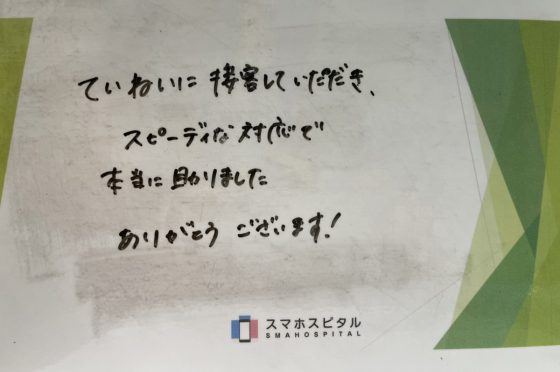 ていねいに接客していただき、
スピーディな対応で
本当に助かりました
ありがとうございます!
スマホスピタル
SMAHOSPITAL